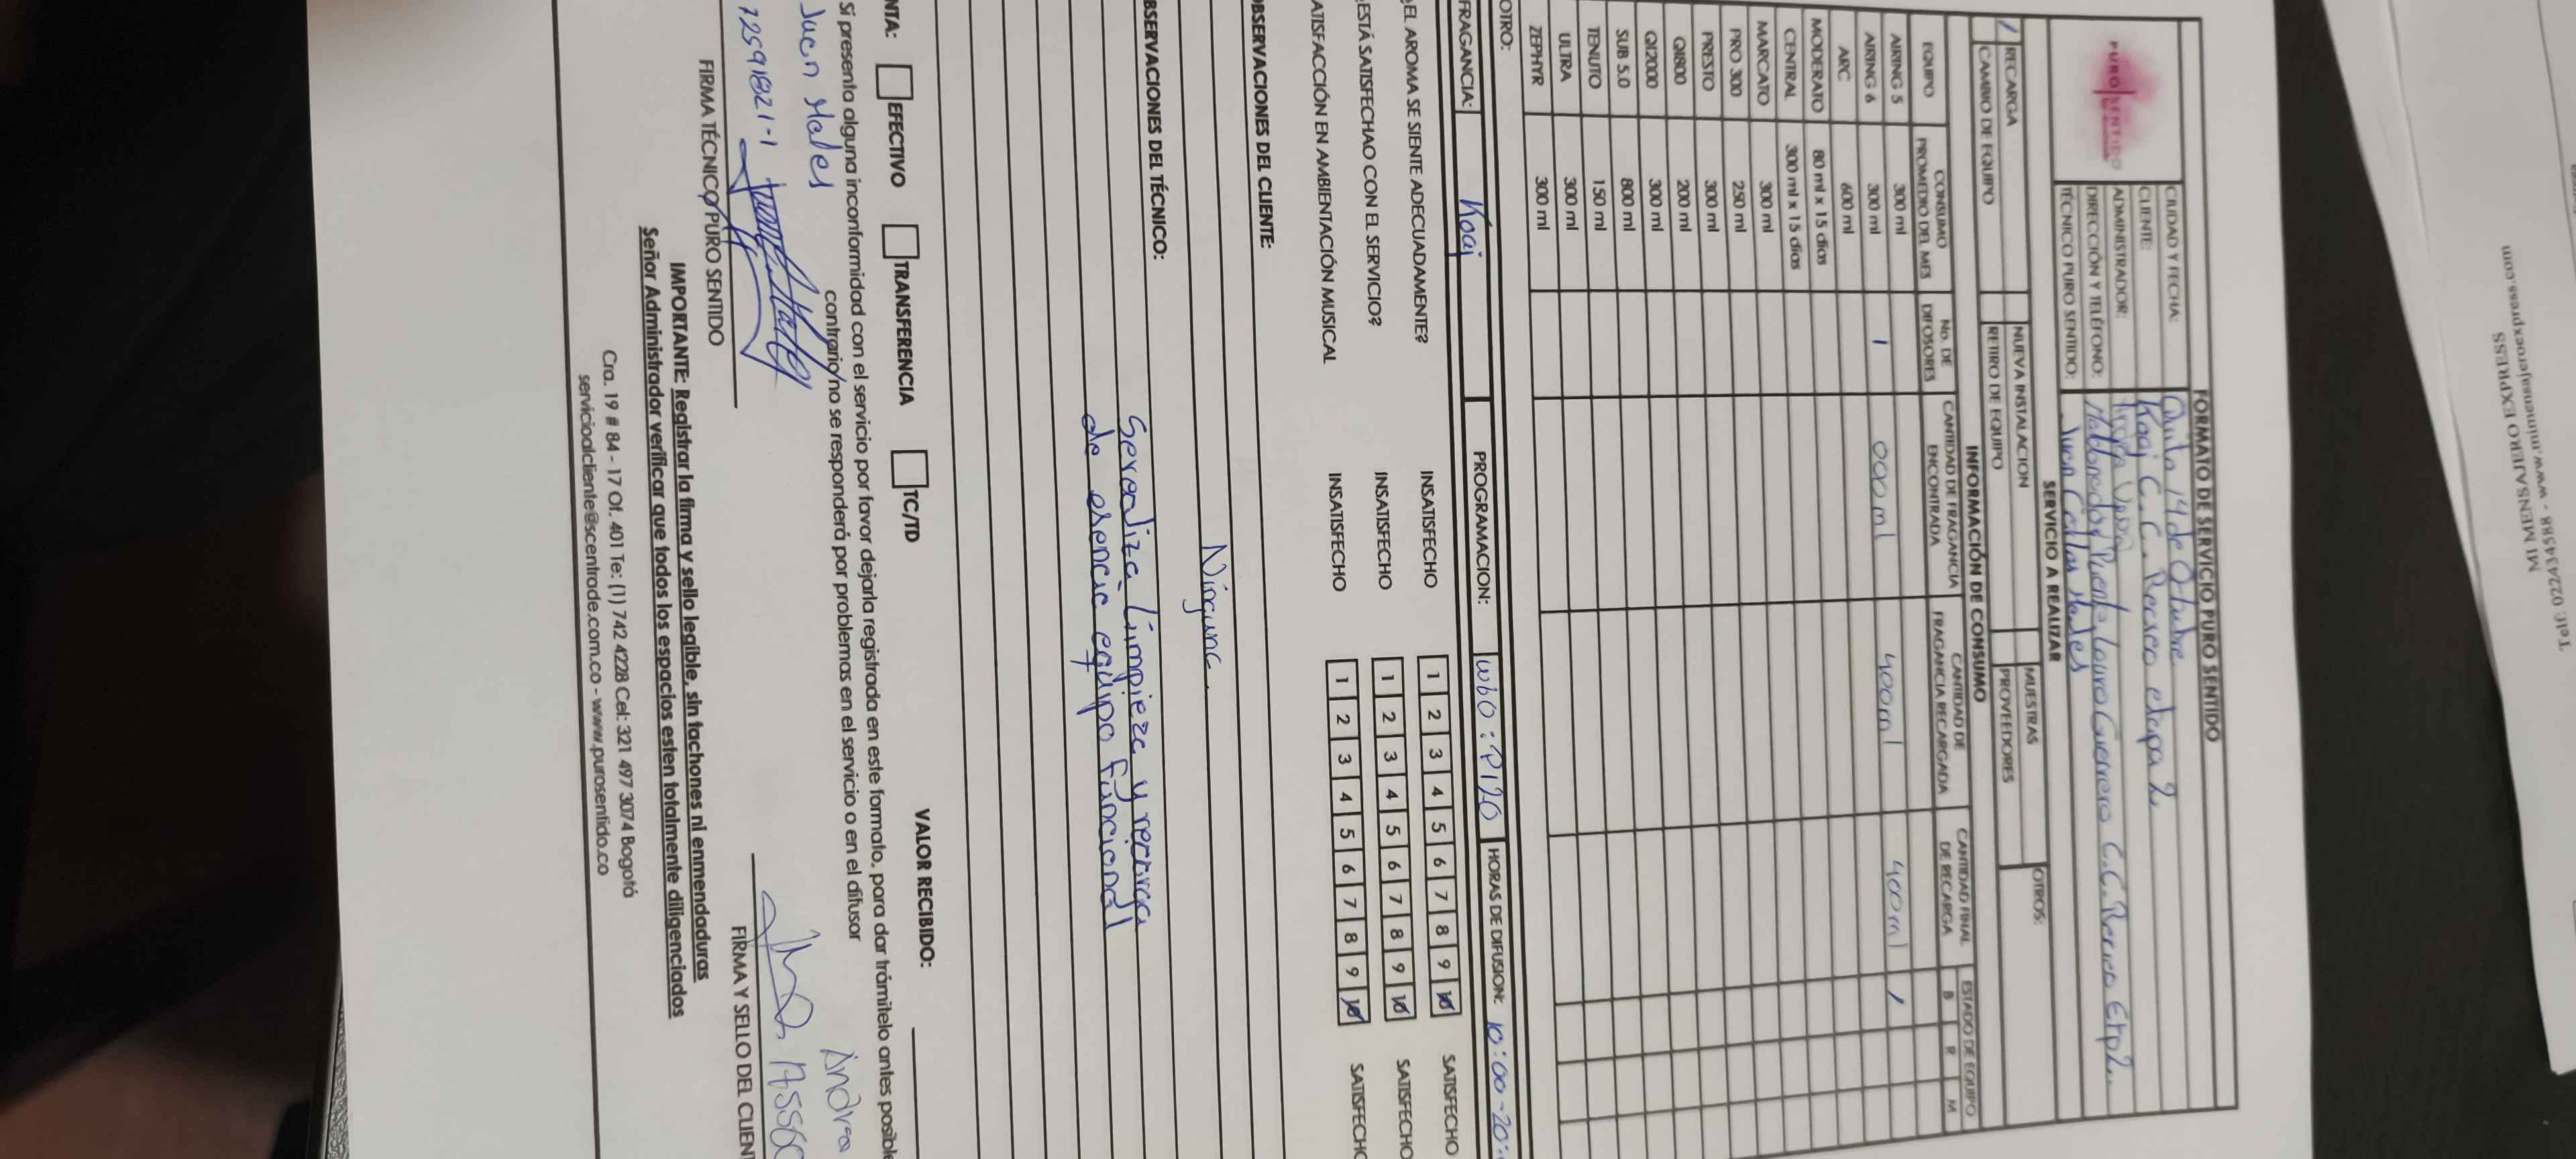 FORMATO DE SERVICIO PURO SENTIDO
PURO SENTIDO
CIUDAD Y FECHA: Quito 14 de Octubre
CLIENTE: Koaj C.C. Recreo etapa 2
ADMINISTRADOR:
DIRECCIÓN Y TELÉFONO: Maldonado y Puente Lauro Guerrero C.C. Recreo Etp2..
TÉCNICO PURO SENTIDO: Juan Carlos Males
SERVICIO A REALIZAR
/ RECARGA NUEVA INSTALACION MUESTRAS OTROS:
CAMBIO DE EQUIPO RETIRO DE EQUIPO PROVEEDORES
INFORMACIÓN DE CONSUMO
EQUIPO CONSUMO PROMEDIO DEL MES No. DE DIFOSORES CANTIDAD DE FRAGANCIA ENCONTRADA CANTIDAD DE FRAGANCIA RECARGADA CANTIDAD FINAL DE RECARGA ESTADO DE EQUIPO
B R M
AIRING 5 300 ml
AIRING 6 300 ml 1 000ml 400ml 400ml /
ARC 600 ml
MODERATO 80 ml x 15 días
CENTRAL 300 ml x 15 días
MARCATO 300 ml
PRO 300 250 ml
PRESTO 300 ml
QI800 200 ml
QI2000 300 ml
SUB 5.0 800 ml
TENUTO 150 ml
ULTRA 300 ml
ZEPHYR 300 ml
OTRO:
FRAGANCIA: Koaj PROGRAMACION: W60:P120 HORAS DE DIFUSION: 10:00-20:
EL AROMA SE SIENTE ADECUADAMENTE? INSATISFECHO 1 2 3 4 5 6 7 8 9 10 SATISFECHO
ESTÁ SATISFECHAO CON EL SERVICIO? INSATISFECHO 1 2 3 4 5 6 7 8 9 10 SATISFECHO
ATISFACCIÓN EN AMBIENTACIÓN MUSICAL INSATISFECHO 1 2 3 4 5 6 7 8 9 10 SATISFECHO
OBSERVACIONES DEL CLIENTE:
Ninguna.
BSERVACIONES DEL TÉCNICO:
Se realiza limpieza y recarga
de esencia equipo funcional
NTA: EFECTIVO TRANSFERENCIA TC/TD VALOR RECIBIDO:
Si presenta alguna inconformidad con el servicio por favor dejarla registrada en este formato, para dar trámitelo antes posible
contrario no se responderá por problemas en el servicio o en el difusor
Juan Males
Andrea
FIRMA TÉCNICO PURO SENTIDO FIRMA Y SELLO DEL CLIEN
IMPORTANTE: Registrar la firma y sello legible, sin tachones ni enmendaduras
Señor Administrador verificar que todos los espacios esten totalmente diligenciados
Cra. 19 # 84 - 17 Of. 401 Te: (1) 742 4228 Cel: 321 497 3074 Bogotá
servicioalcliente@scentrade.com.co - www.purosentido.co
MI MENSAJERO EXPRESS
Telf: 022434388 - www.mimensajeroexpress.com